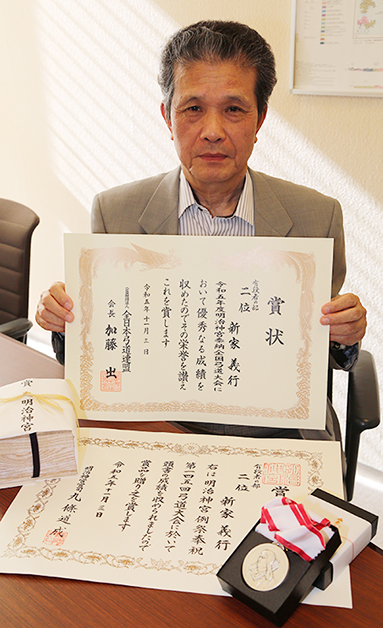 賞状
有段者の部
二位
新家義行
令和五年度明治神宮奉納全国弓道大会に
おいて優秀なる成績を
収めたのでその栄誉を讃え
これを賞します
令和五年十一月三日
公益財団法人 全日本弓道連盟
会長 加藤出
賞
明治神宮
賞
有段者の部
二位
新家義行
右は明治神宮例祭奉祝
第一四五回弓道大会に於いて
頭書の成績を収められましたので
賞品を贈り之を賞します
令和五年十一月三日
明治神宮宮司 九條道成